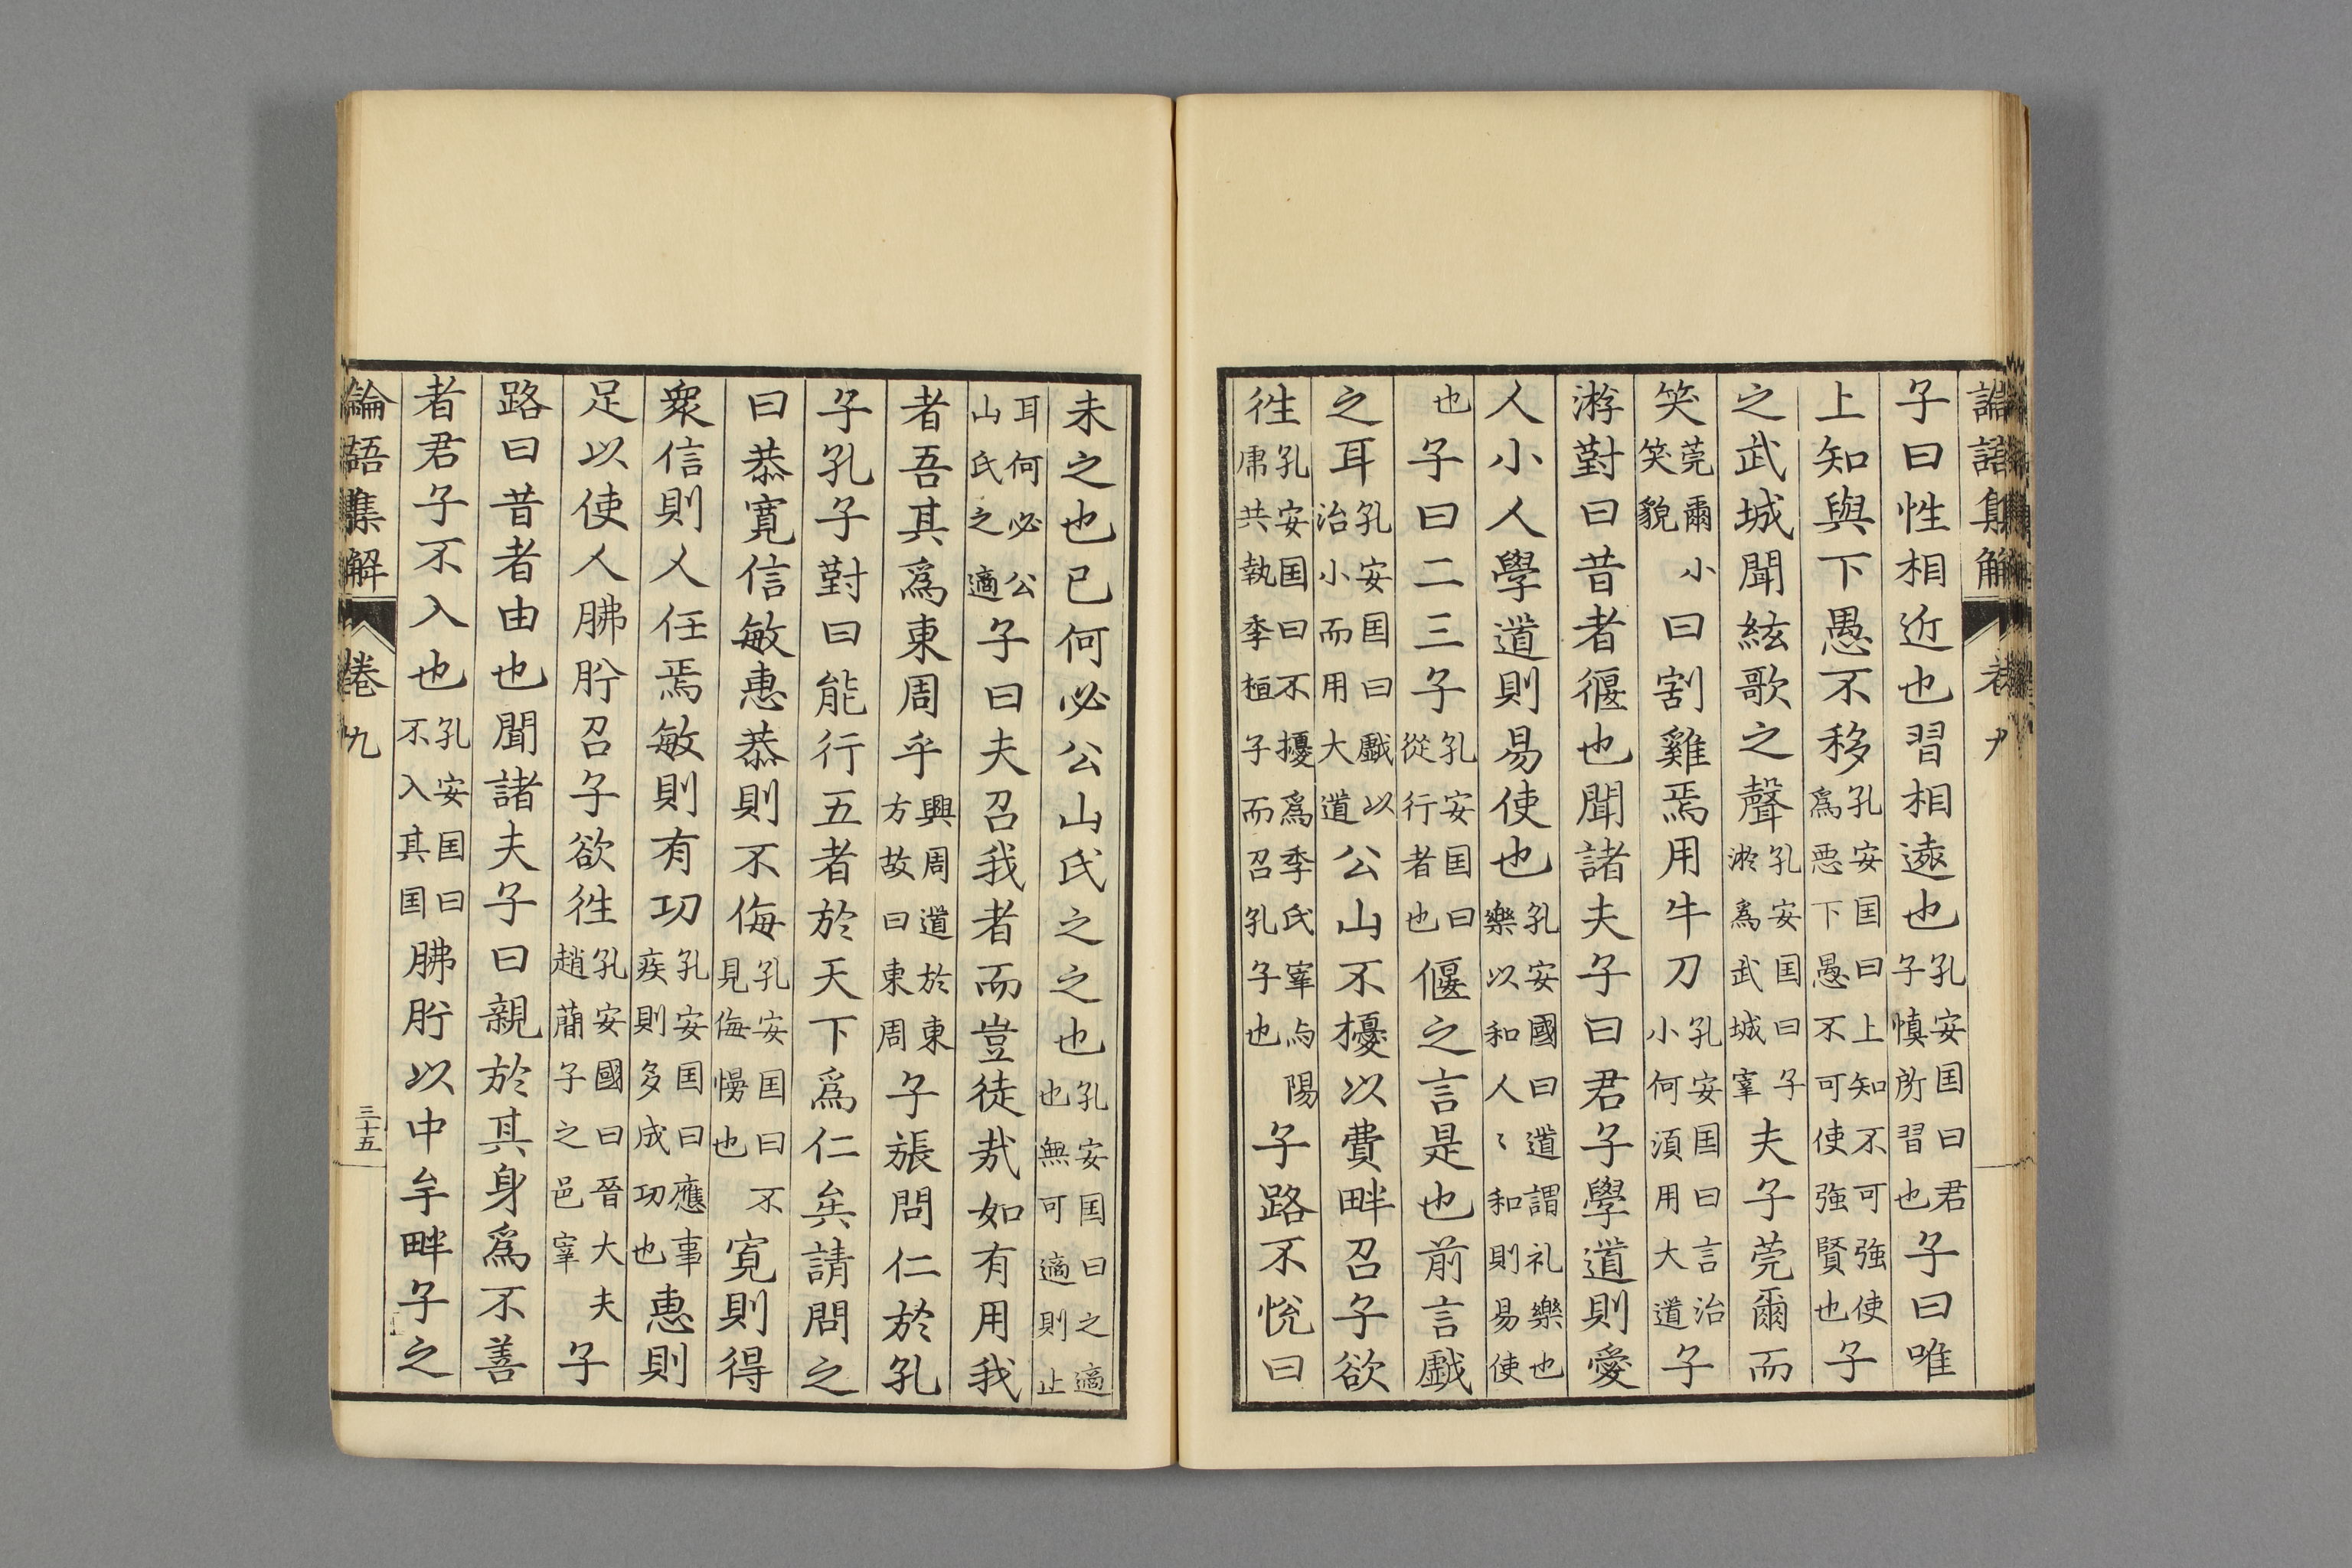 子曰性相近也習相遠也孔安国曰君子慎所習也子曰唯
上知與下愚不移孔安国曰上知不可強使爲悪下愚不可使強賢也子
之武城聞絃歌之聲孔安国曰子游爲武城宰夫子莞爾而
笑莞爾小笑貌曰割雞焉用牛刀孔安国曰言治小何湏用大道子
游對曰昔者偃也聞諸夫子曰君子學道則愛
人小人學道則易使也孔安國曰道謂礼樂也樂以和人〻和則易使
也子曰二三子孔安国曰從行者也偃之言是也前言戯
之耳孔安国曰戯以治小而用大道公山不擾以費畔召子欲
徃孔安国曰不擾爲季氏宰与陽虎共執季桓子而召孔子也子路不悅曰
未之也已何必公山氏之之也孔安国曰之適也無可適則止
耳何必公山氏之適子曰夫召我者而豈徒㢤如有用我
者吾其爲東周乎興周道於東方故曰東周子張問仁於孔
子孔子對曰能行五者於天下爲仁矣請問之
曰恭寬信敏惠恭則不侮孔安国曰不見侮慢也寬則得
衆信則人任焉敏則有功孔安国曰應事疾則多成功也惠則
足以使人胇肸召子欲徃孔安國曰晉大夫趙蕳子之邑宰子
路曰昔者由也聞諸夫子曰親於其身爲不善
者君子不入也孔安国曰不入其国胇肸以中牟畔子之
論語集解
卷九
三十五